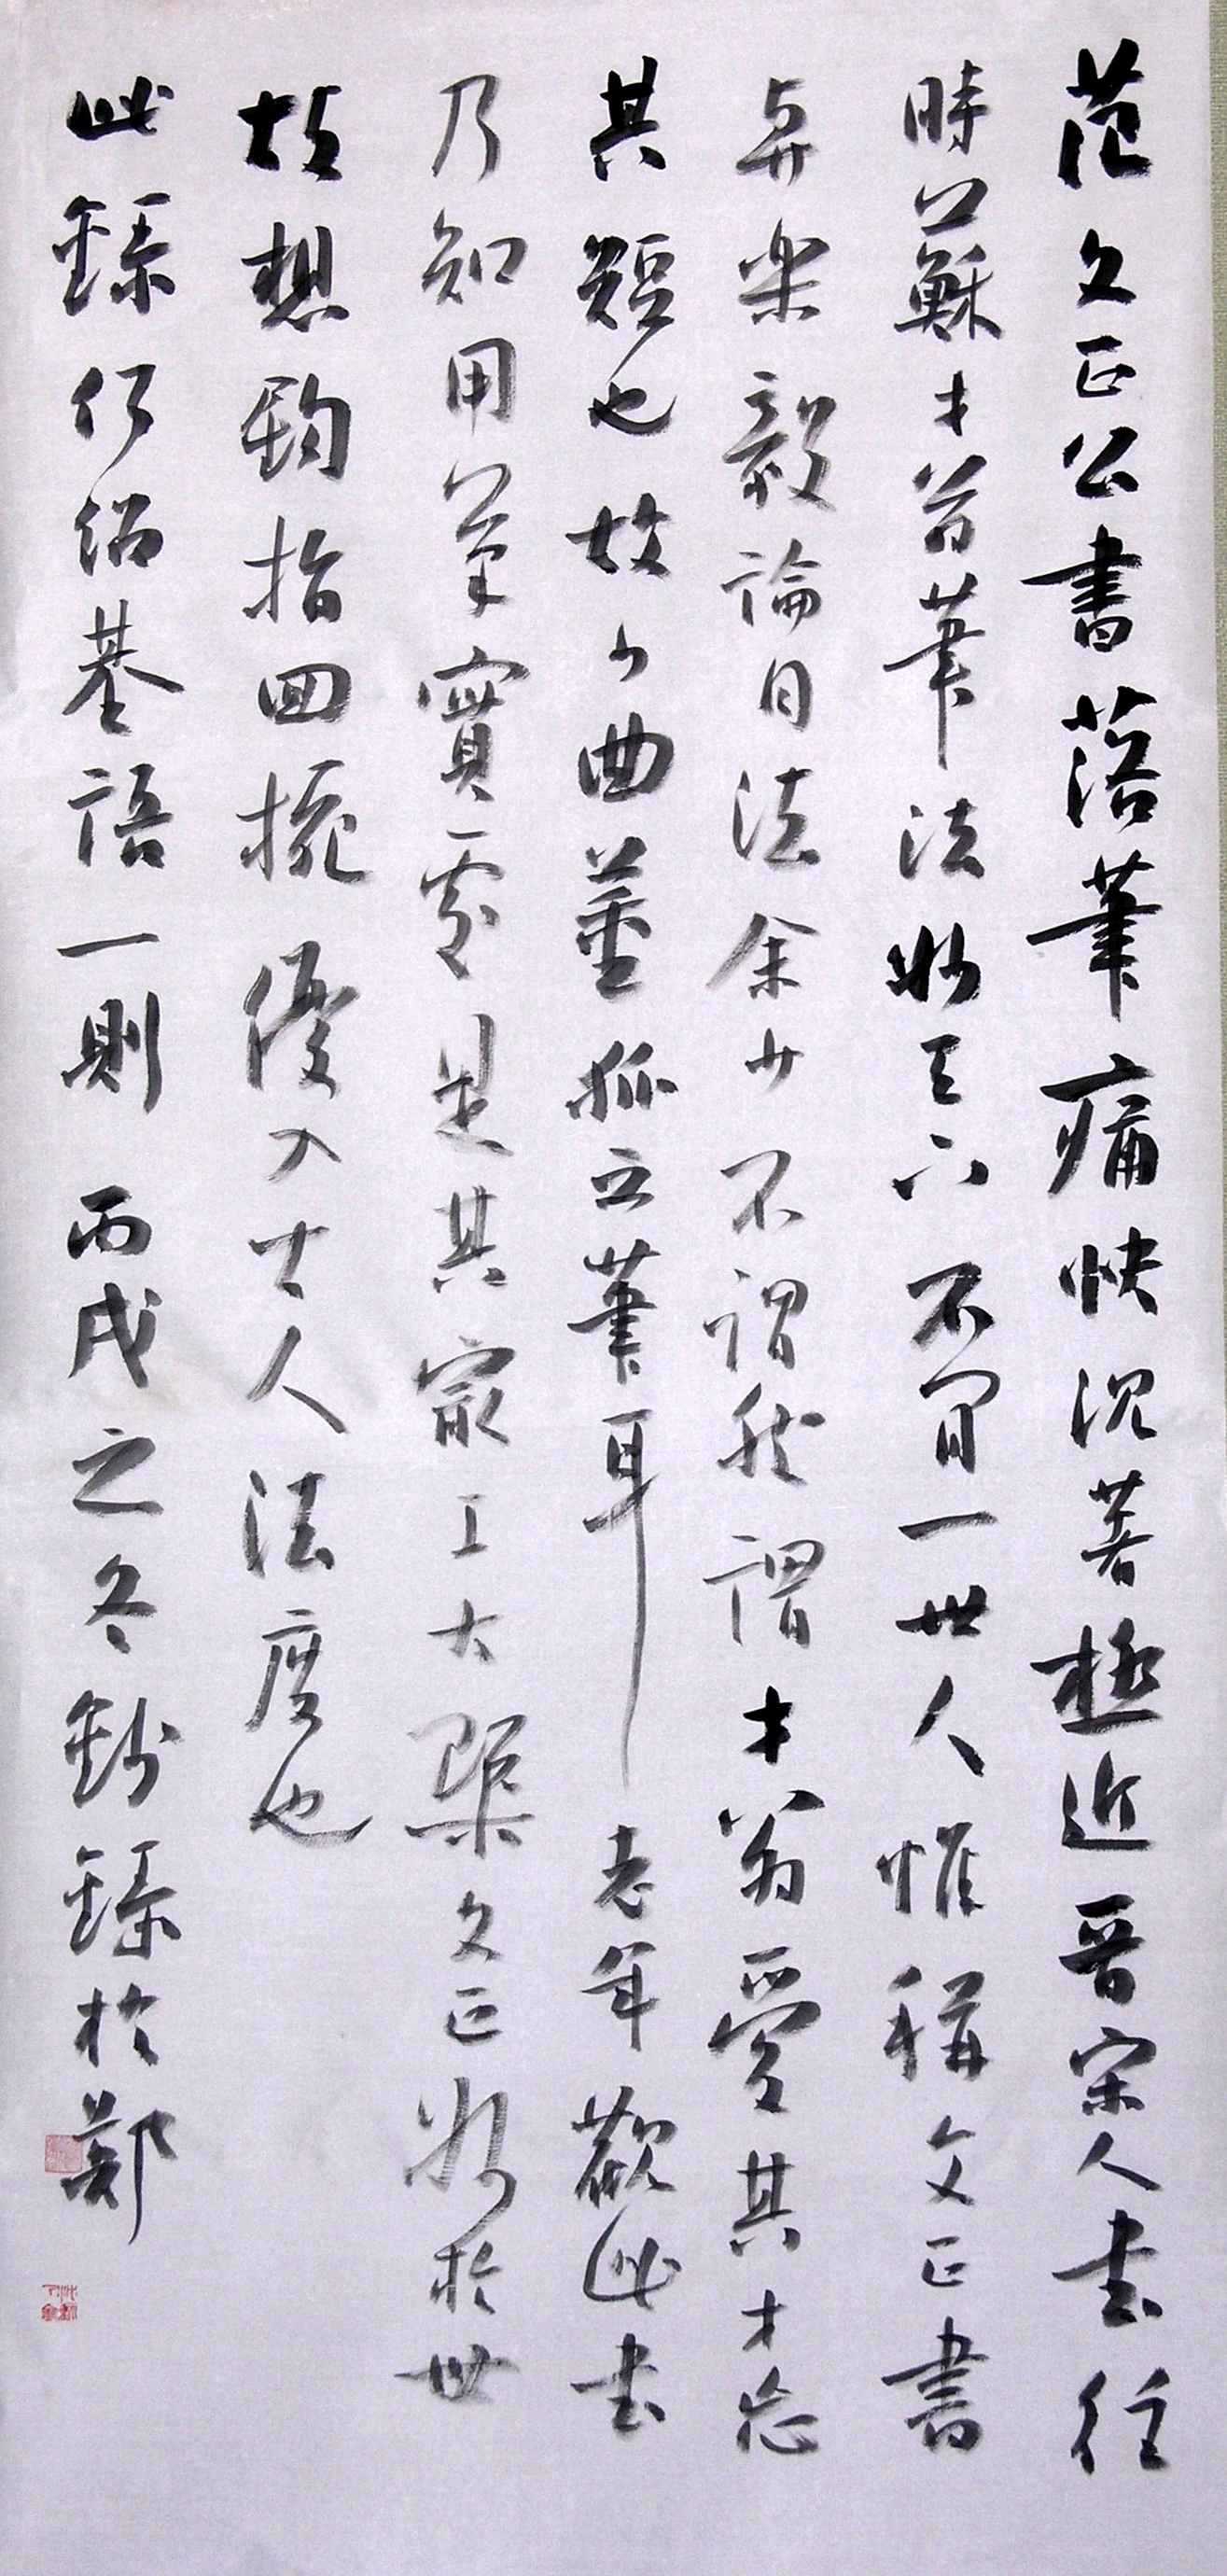 范文正公書落筆痛快沈著極近晉宋人書往
時蘇才翁筆法妙天下不肯一世人惟稱文正書
與樂毅論同法余少不謂然謂才翁愛其才忘
其短也故少曲董狐之筆耳老年觀此書
乃知用筆實處是其最工大槩文正妙於世
故想鉤指回捥優入古人法度也
此錄何紹基語一則 丙戌之冬鈔錄於鄭